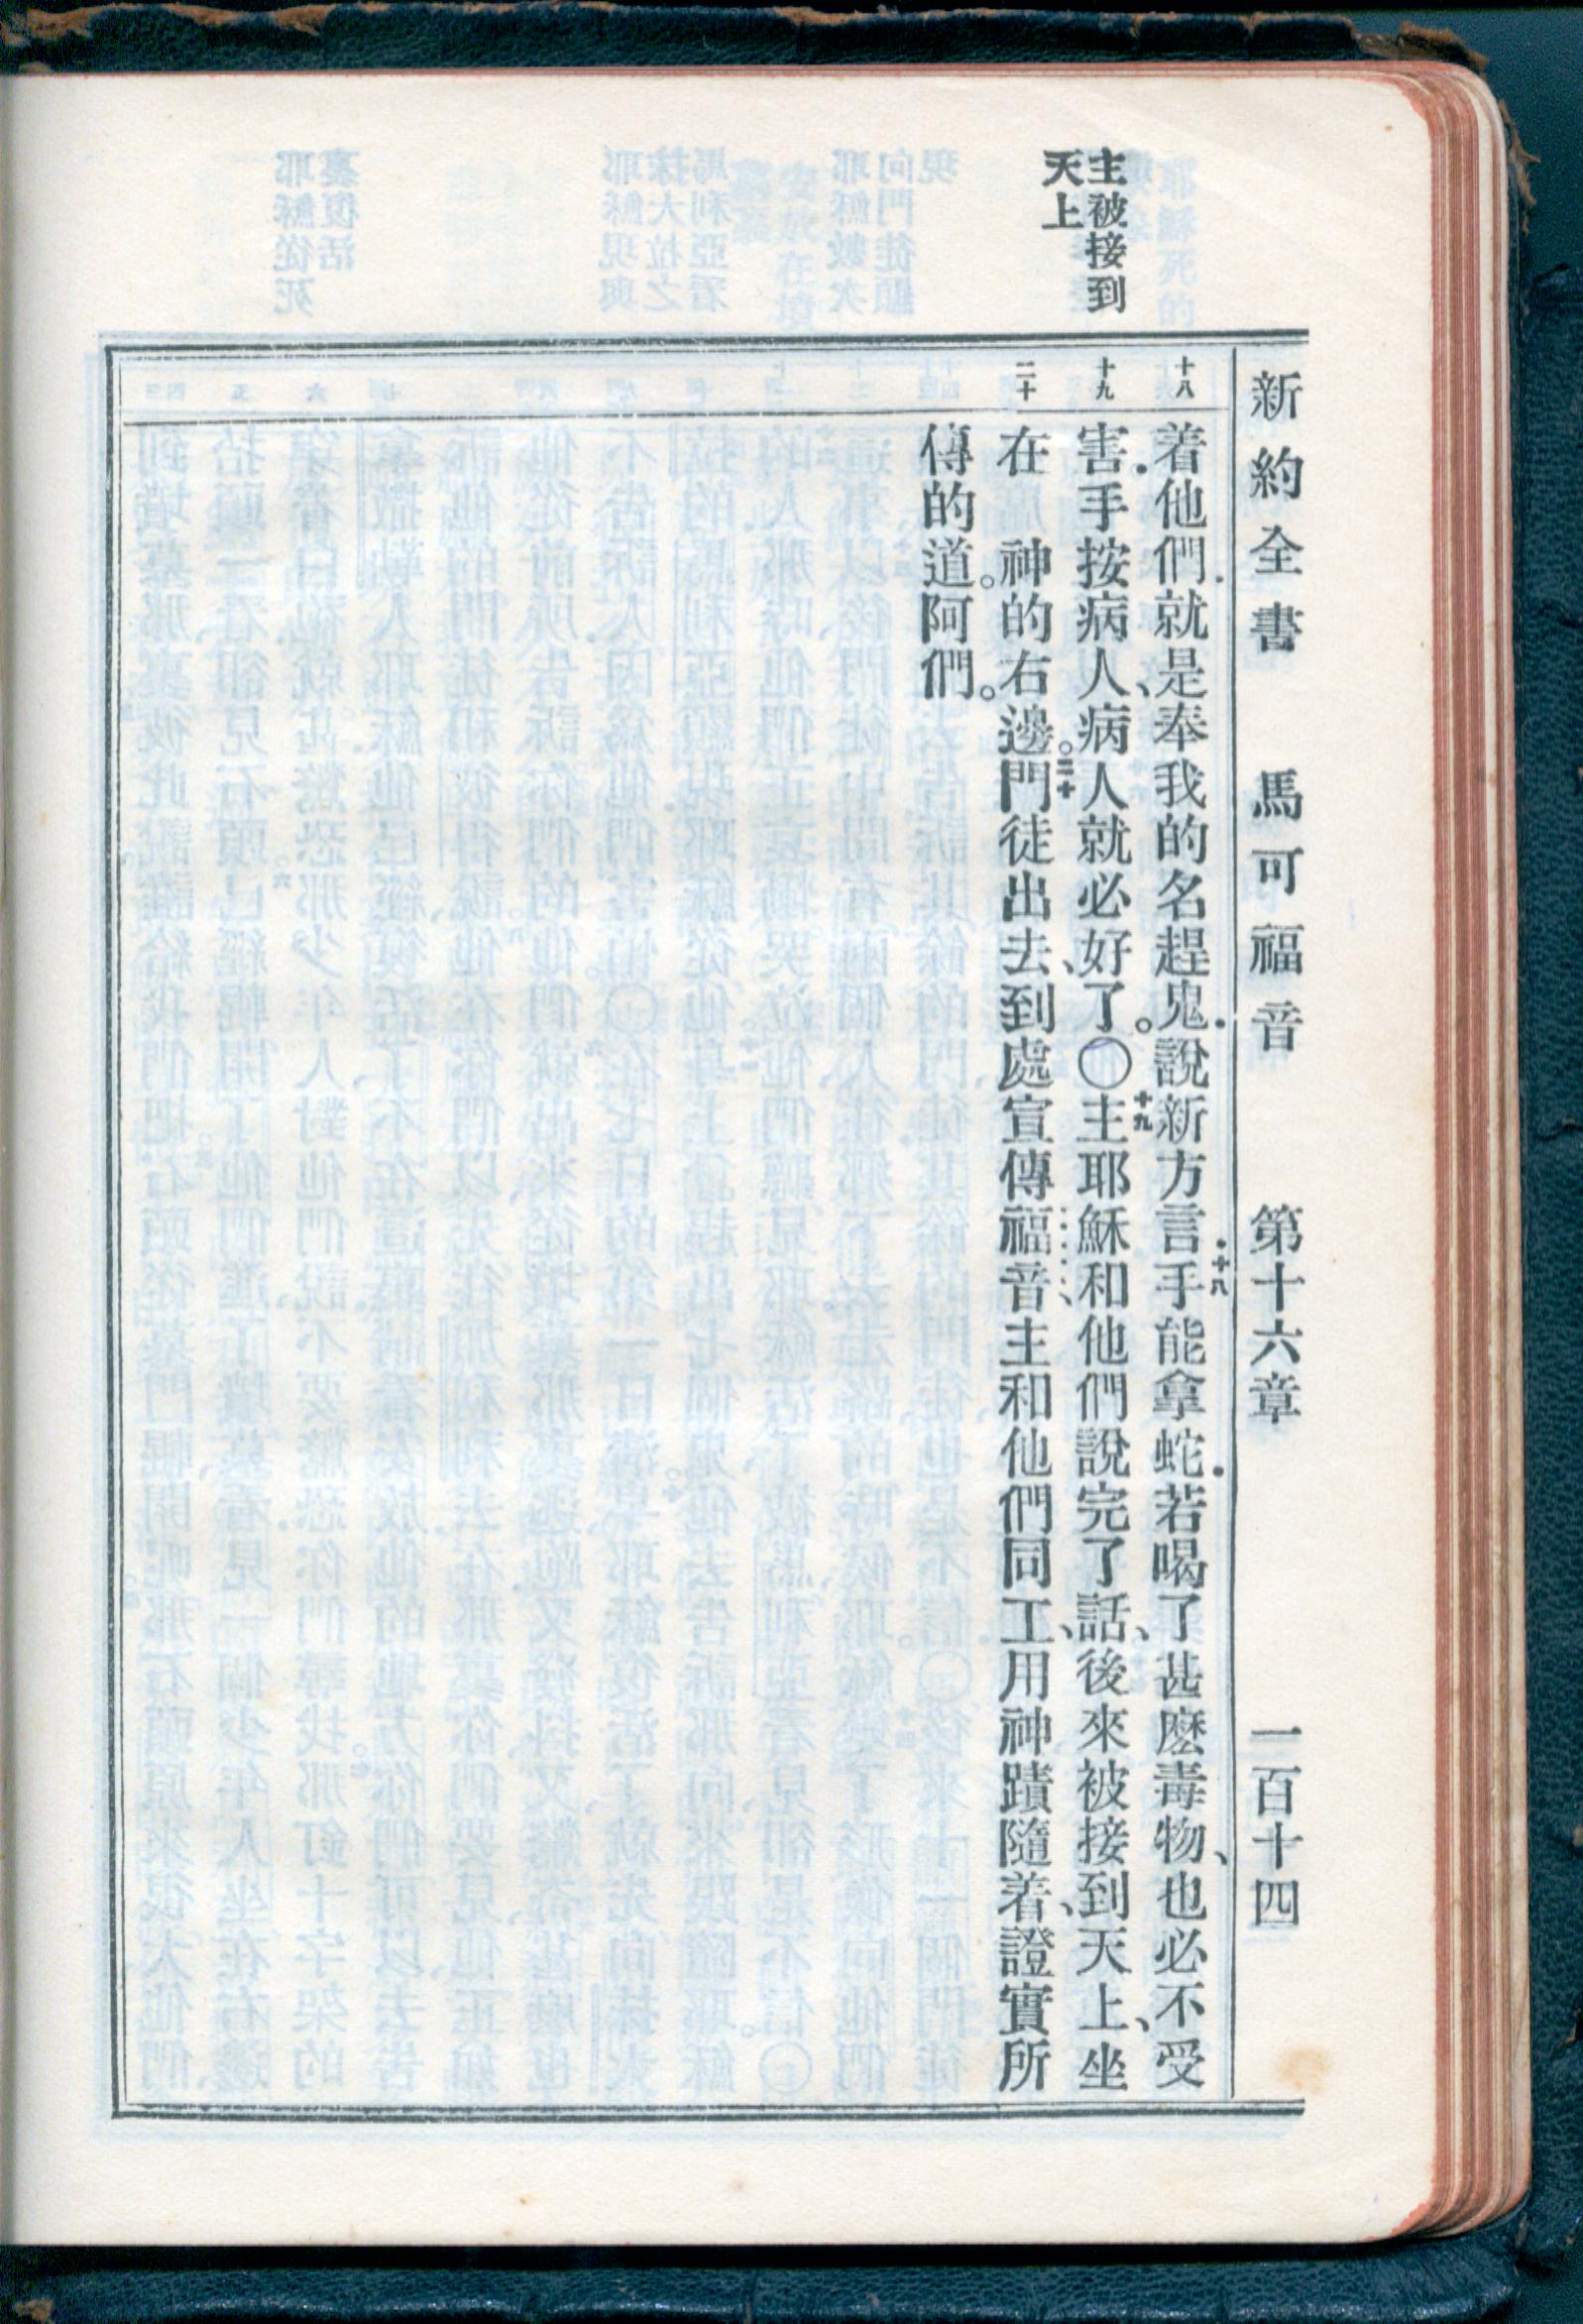 新約全書 馬可福音 第十六章 一百十四
主被接到
天上
十八
十九
二十
着他們．就是奉我的名趕鬼．說新方言．十八手能拿蛇．若喝了甚麽毒物、也必不受
害．手按病人、病人就必好了。〇十九主耶穌和他們說完了話、後來被接到天上、坐
在　神的右邊。二十門徒出去、到處宣傳福音、主和他們同工、用神蹟隨着、證實所
傳的道。阿們。